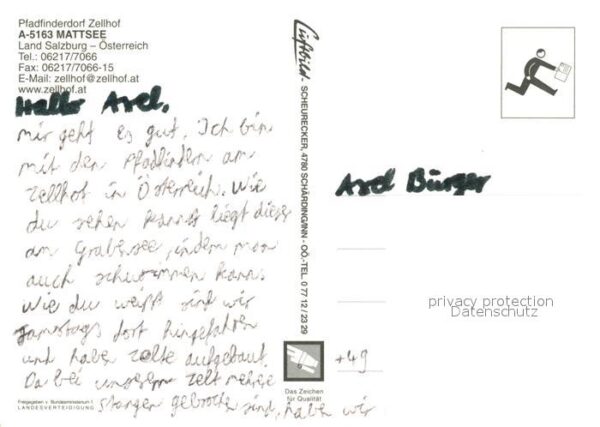 Pfadfinderdorf Zellhof
A-5163 MATTSEE
Land Salzburg – Österreich
Tel.: 06217/7066
Fax: 06217/7066-15
E-Mail: zellhof@zellhof.at
www.zellhof.at
Hallo Axel,
mir geht es gut. Ich bin
mit den Pfadfindern am
Zellhof in Österreich. Wie
du sehen kannst liegt dieser
am Grabensee, indem man
auch schwimmen kann.
Wie du weißt sind wir
Samstags dort hingefahren
und habe Zelte aufgebaut.
Da bei unserem Zelt mehre
Stangen gebrochen sind, habe wir
Freigegeben v. Bundesministerium f.
LANDESVERTEIDIGUNG
Luftbild - SCHEURECKER, 4780 SCHÄRDING/INN - OÖ.-TEL. 0 77 12 / 23 29
Das Zeichen
für Qualität
Axel Bürger
privacy protection
Datenschutz
+49